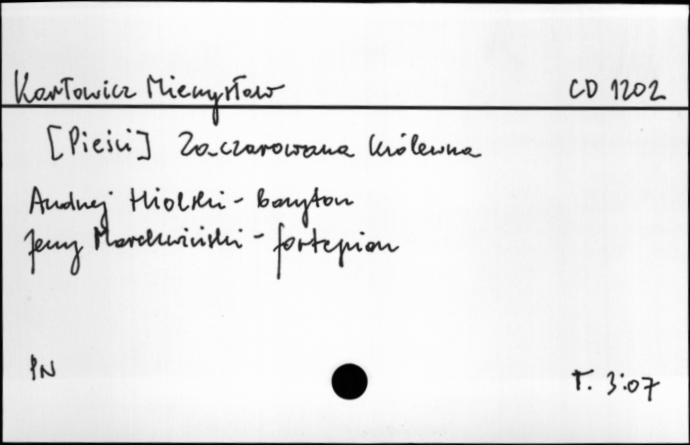 Karłowicz Mieczysław CD 1202
[Pieśni] Zaczarowana królewna
Andrzej Hiolski - baryton
Jerzy Marchwiński - fortepian
PN T. 3:07